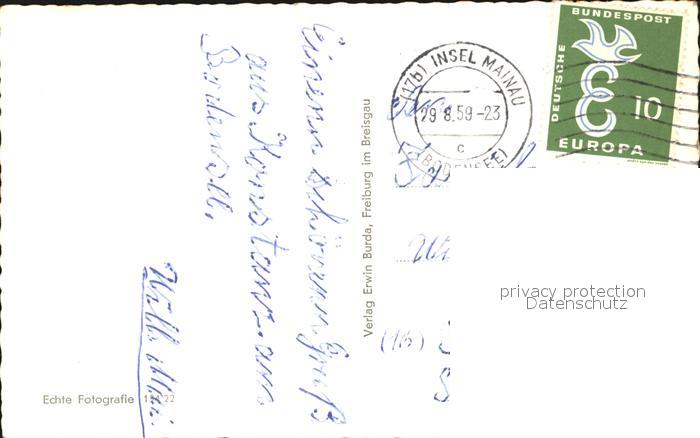 Einen schönen Gruß
aus Konstanz am
Bodensee.
Echte Fotografie
Verlag Erwin Burda, Freiburg im Breisgau
(17b) INSEL MAINAU
29.8.59-23
c
(BODENSEE)
DEUTSCHE
BUNDESPOST
10
EUROPA
(16)
privacy protection
Datenschutz